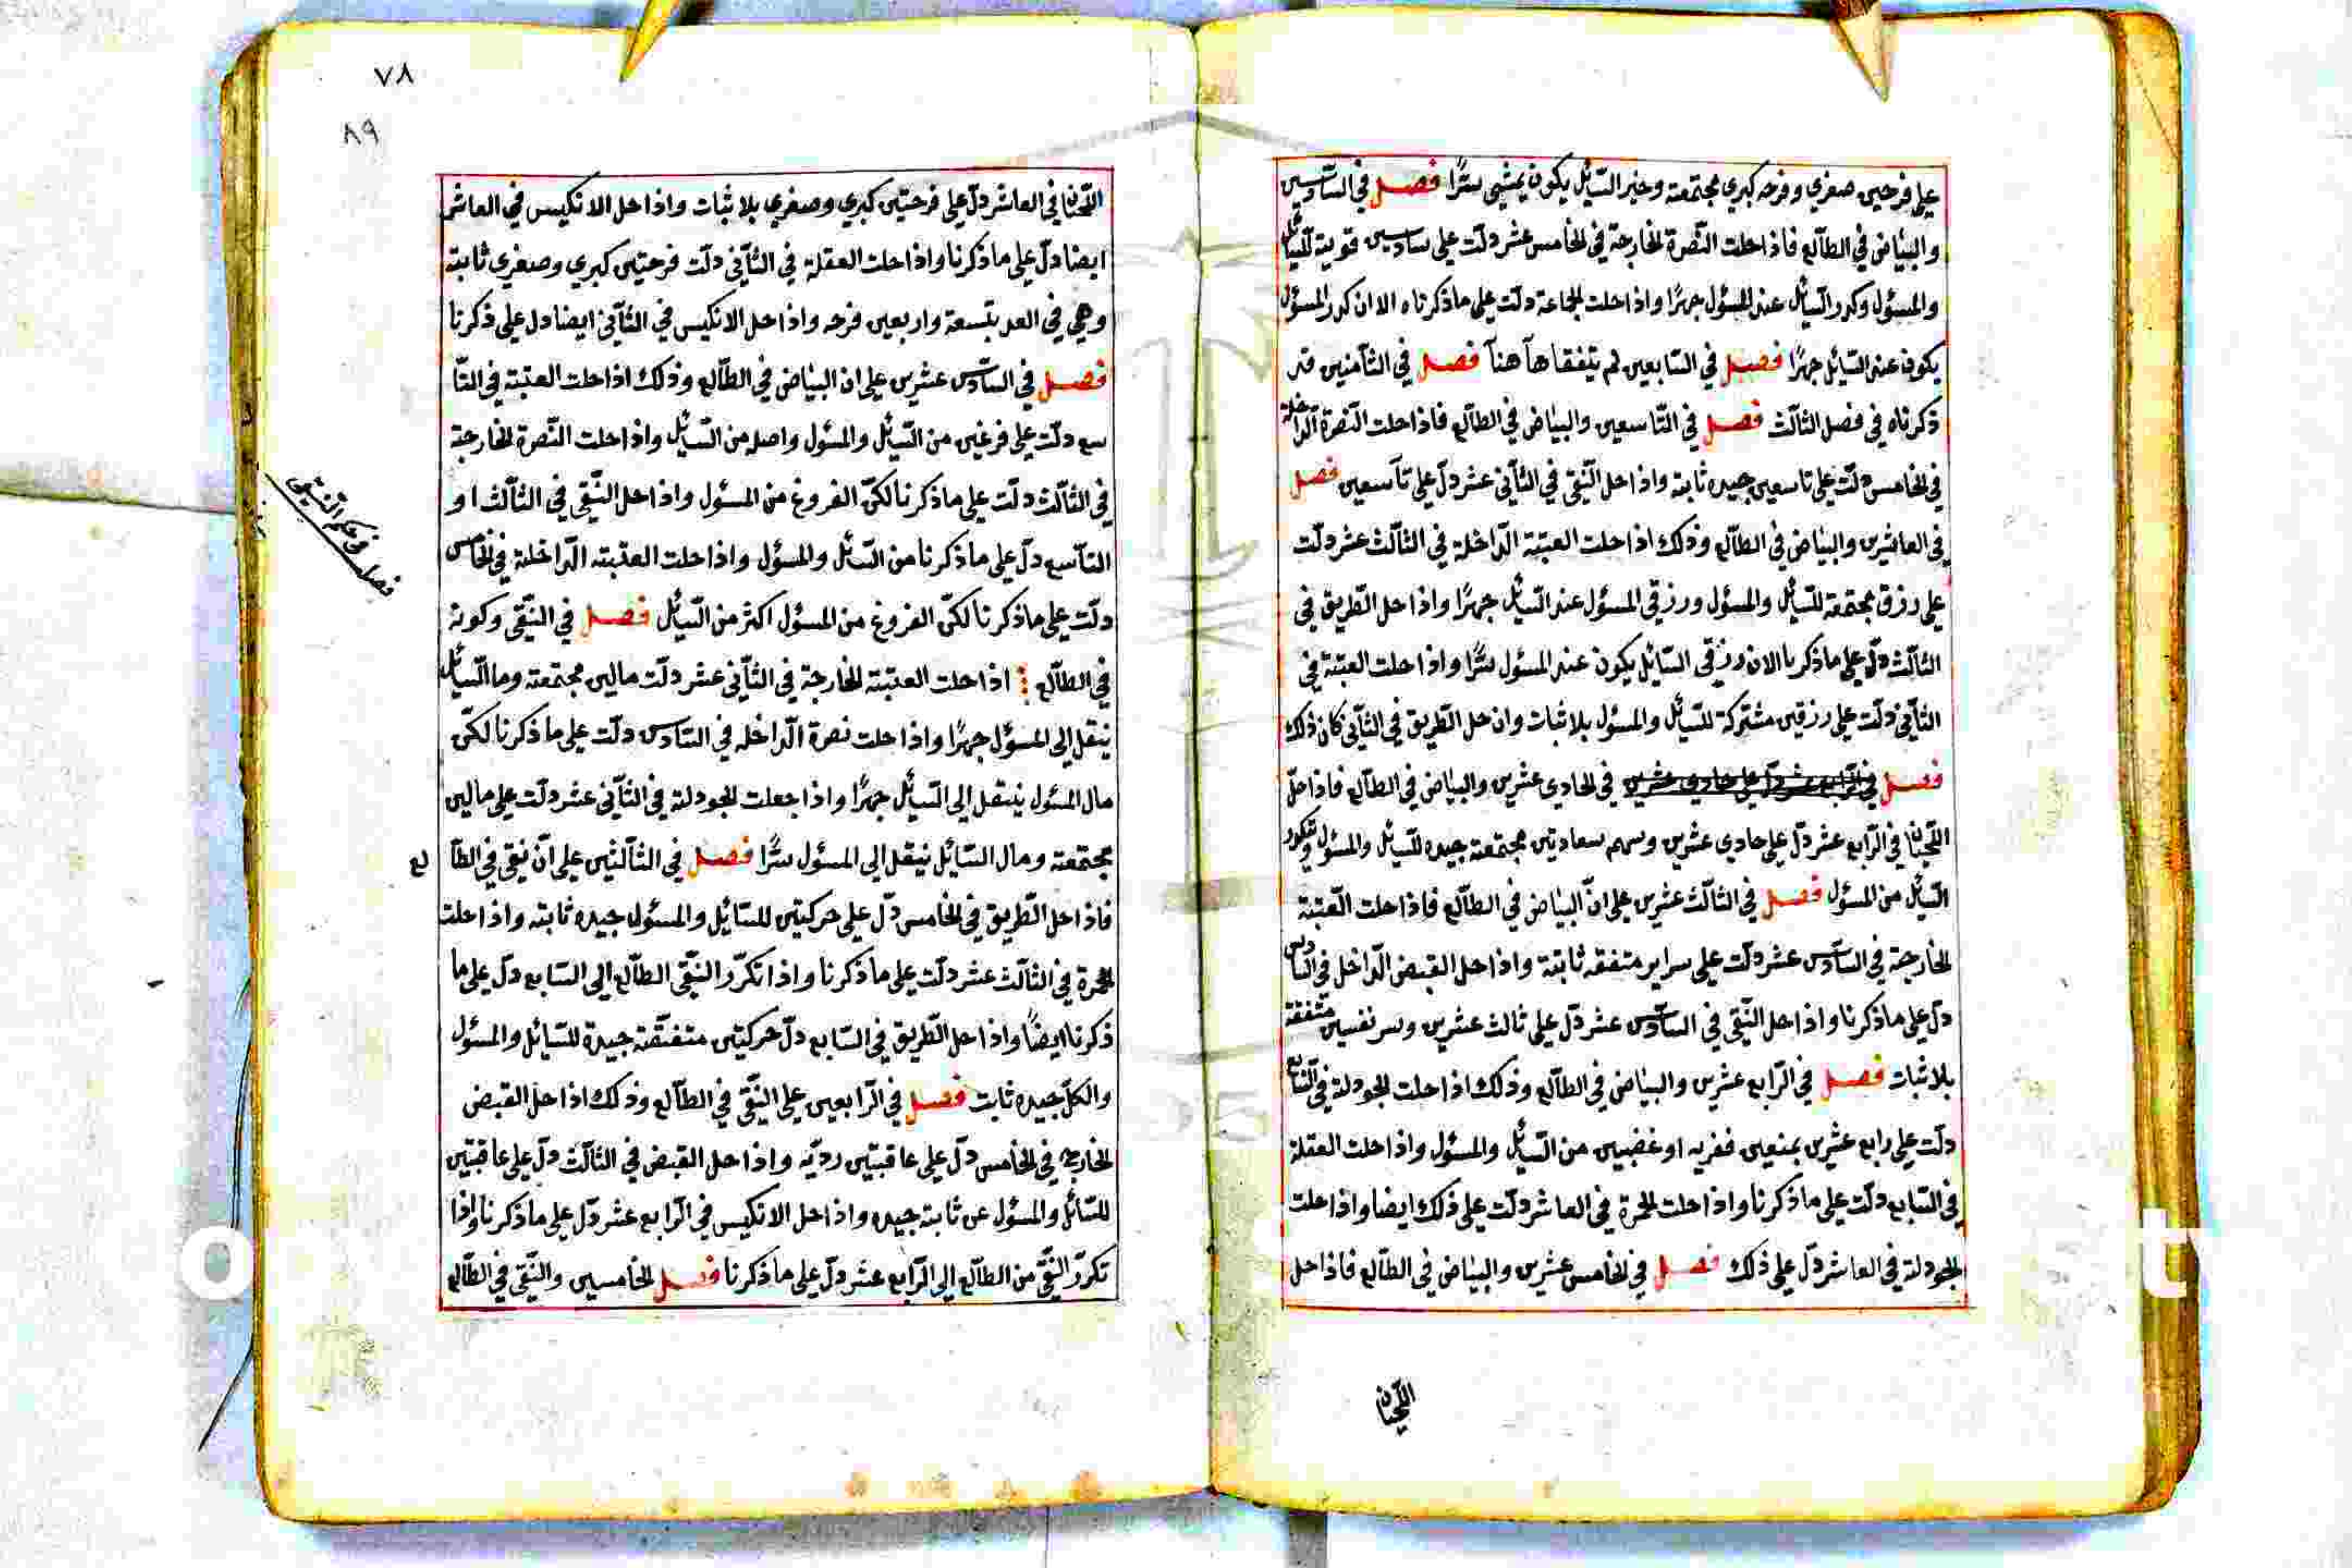 على فرحين صغري وفرحه كبري مجتمعته وخبر السّائل يكون يمشي سرًّا فصل في السّادسين
والبيٰاض في الطّالع فاذا حلت النّصرة الخارجة في الخامس عشر دلّت على سادسين قوية للسّائل
والمسئول وكدر السّائل عند المسئول جهرًا واذا حلت الجماعة دلّت على ما ذكرناه الا ان كدر المسئول
يكون عند السّائل جهرًا فصل في السّابعين لم يتفقا هآ هنآ فصل في الثّامنين قد
ذكرناه في فصل الثّالث فصل في التّاسعين والبيٰاض في الطّالع فاذا حلت النّصرة الدّاخلة
في الخامس دلّت على تاسعين جيده ثابته واذا حل النّقي في الثّاني عشر دلّ على تآسعين فصل
في العاشرين والبيٰاض في الطّالع وذلك اذا حلت العتبة الدّاخلة في الثّالث عشر دلّت
على رزق مجتمعة للسّائل والمسئول ورزقي المسئول عند السّائل جهرًا واذا حل الطّريق في
الثّالث دلّ على ما ذكرنا الا ان رزقي السّائل يكون عند المسئول سرًّا واذا حلت العتبة في
الثّاني دلّت على رزقين مشتركة للسّائل والمسئول بلا ثبات وان حل الطّريق في الثّاني كان ذلك
فصل في الرّابع عشر دلّ على حادي عشرين في الحادي عشرين والبيٰاض في الطّالع فاذا حلّ
اللّحيٰان في الرّابع عشر دلّ على حادي عشرين وسهم سعادتين مجتمعة جيده للسّائل والمسئول وتكدر
السّائل من المسئول فصل في الثّالث عشرين على انّ البيٰاض في الطّالع فاذا حلت العتبة
الخارجة في السّادس عشر دلّت على سراير متفقه ثابتة واذا حل القبض الدّاخل في السّادس
دلّ على ما ذكرنا واذا حل النّقي في السّادس عشر دلّ على ثالث عشرين وسر نفسين متفقة
بلا ثبات فصل في الرّابع عشرين والبيٰاض في الطّالع وذلك اذا حلت الجودلة في السّابع
دلّت على رابع عشرين بمنعين فقريه او غضبين من السّائل والمسئول واذا حلت العقلة
في السّابع دلّت على ما ذكرنا واذا حلت الحمرة في العاشر دلّت على ذلك ايضا واذا حلت
الجودلة في العاشر دلّ على ذلك فصل في الخامس عشرين والبيٰاض في الطّالع فاذا حل
اللّحيٰان
٧٨
٨٩
اللّحيٰان في العاشر دلّ على فرحتين كبري وصغري بلا ثبات واذا حل الانكيس في العاشر
ايضا دلّ على ما ذكرنا واذا حلت العقلة في الثّاني دلّت فرحتين كبري وصغري ثابته
وهي في العد بتسعة واربعين فرحه واذا حل الانكيس في الثّاني ايضا دل على ذكرنا
فصل في السّادس عشرين على ان البيٰاض في الطّالع وذلك اذا حلت العتبة في التّا
سع دلّت على فرغين من السّائل والمسئول واصله من السّائل واذا حلت النّصرة الخارجة
في الثّالث دلّت على ما ذكرنا لكنّ الفروغ من المسئول واذا حل النّقي في الثّالث او
التّاسع دلّ على ما ذكرنا من السّائل والمسئول واذا حلت العتبته الدّاخلة في الخامس
دلّت على ما ذكرنا لكنّ الفروغ من المسئول اكثر من السّائل فصل في النّقي وكونه
في الطّالع اذا حلت العتبته الخارجة في الثّاني عشر دلّت مالين مجتمعة وما السّائل
ينقل الى المسئول جهرًا واذا حلت نصرة الدّاخله في السّادس دلّت على ما ذكرنا لكنّ
مال المسئول ينتقل الى السّائل جهرًا واذا جعلت الجودلة في الثّاني عشر دلّت على مالين
مجتمعته ومال السّائل ينقل الى المسئول سرًّا فصل في الثّالثين على انّ نقي في الطّا لع
فاذا حل الطّريق في الخامس دلّ على حركتين للسّائل والمسئول جيده ثابته واذا حلت
الحمرة في الثّالث عشر دلّت على ما ذكرنا واذا تكرّر النّقي الطّالع الى السّابع دلّ على ما
ذكرنا ايضًا واذا حل الطّريق في السّابع دلّ حركتين متفقّة جيدة للسّائل والمسئول
والكلّ جيده ثابت فصل في الرّابعين على النّقي في الطّالع وذلك اذا حل القبض
الخارج في الخامس دلّ على عاقبتين رديّه واذا حل القبض في الثّالث دلّ على عاقبتين
للسّائل والمسئول عن ثابتة جيده واذا حل الانكيس في الرّابع عشر دلّ على ما ذكرنا واذا
تكرّر النّقي من الطّالع الى الرّابع عشر دلّ على ما ذكرنا فصل الخامسين والنّقي في الطّالع
فصل في حكم النّقي